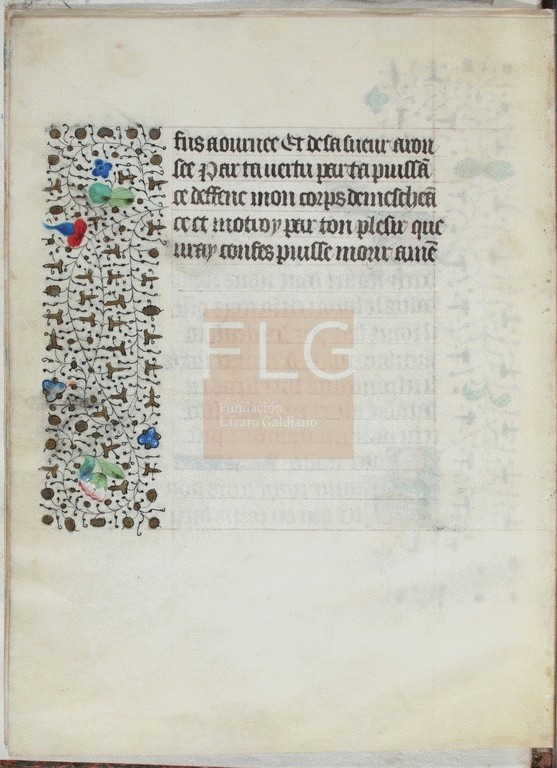 fus aournee Et de sa sueur arou
see Par ta uertu par ta puissā
ce deffenc mon corps de mescheā
ce et motroy par ton plesir que
uray confes puisse morir amē
FLG
Fundación
Lázaro Galdiano